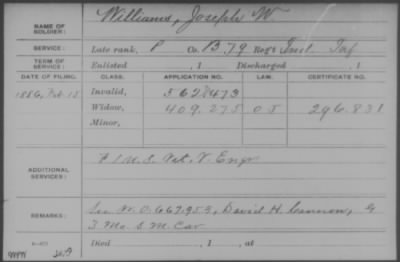 NAME OF SOLDIER: Williams, Joseph W
SERVICE: Late rank, P Co. B. 79 Reg't Ind. Inf
TERM OF SERVICE: Enlisted , 1 Discharged , 1
DATE OF FILING. CLASS. APPLICATION NO. LAW. CERTIFICATE NO.
1886, Feb. 15 Invalid, 562 473
Widow, 409.275 05 296.831
Minor,
ADDITIONAL SERVICES: F 1 U.S. Vet. V. Engr
REMARKS: See W. O. 667.955, David H. Cannon, G
3 Mo. S. M. Cav
Died , 1 , at